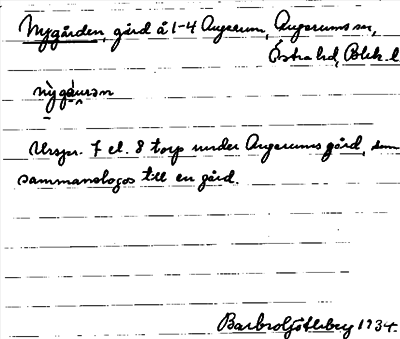 Nygården, gård å 1-4 Augerum, Augerums sn,
Östra hd, Blek. l
nỳgå̀urən
Urspr. 7 el. 8 torp under Augerums gård, som
sammanslogos till en gård.
Barbro Götlberg 1934.